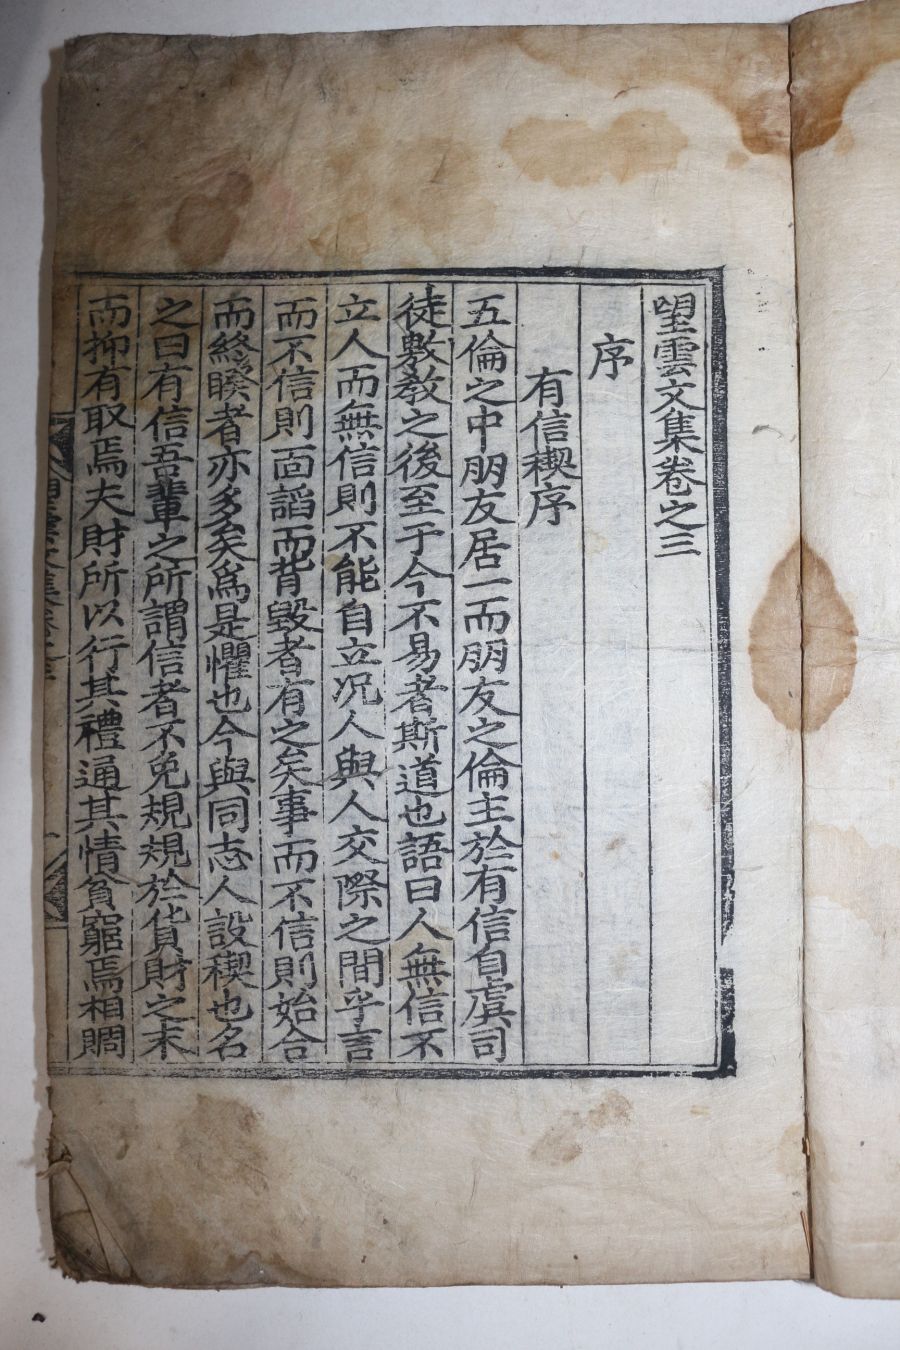 望雲文集卷之三
序
有信稧序
五倫之中朋友居一而朋友之倫主於有信自虞司
徒敷敎之後至于今不易者斯道也語曰人無信不
立人而無信則不能自立况人與人交際之間乎言
而不信則面謟而背毁者有之矣事而不信則始合
而終睽者亦多矣爲是懼也今與同志人設稧也名
之曰有信吾輩之所謂信者不免規規於貨財之末
而抑有取焉夫財所以行其禮通其情貧窮焉相賙